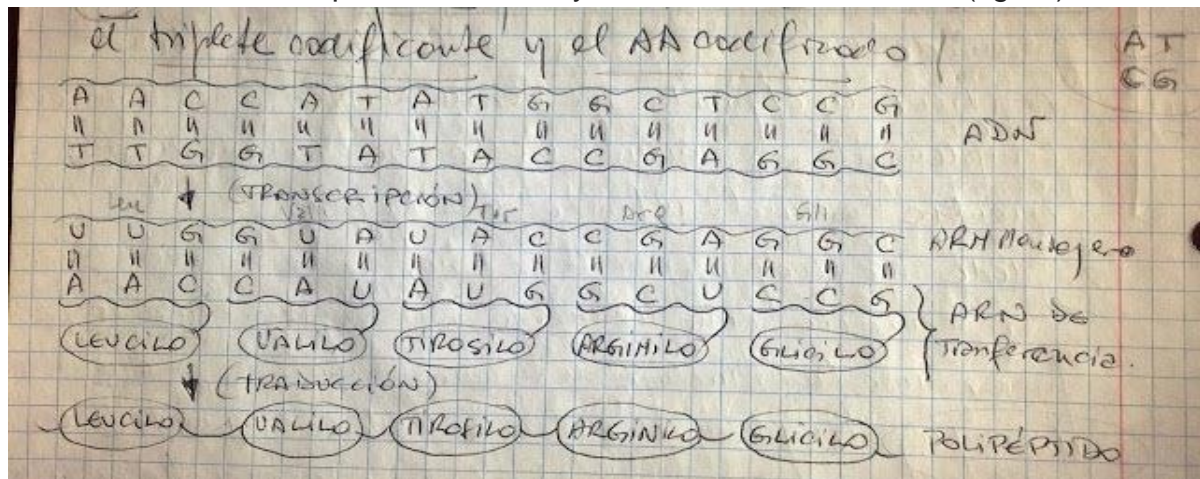 el triplete codificante y el AA codificado
A T
C G
A A C C A T A T G G C T C C G ADN
T T G G T A T A C C G A G G C
(TRANSCRIPCIÓN)
Leu Val Tyr Arg Gli
U U G G U A U A C C G A G G C ARN Mensajero
A A C C A U A U G G C U C C G ARN DE
LEUCILO VALILO TIROSILO ARGINILO GLICILO Tranferencia.
(TRADUCCIÓN)
LEUCILO VALILO TIROSILO ARGINILO GLICILO POLIPÉPTIDO